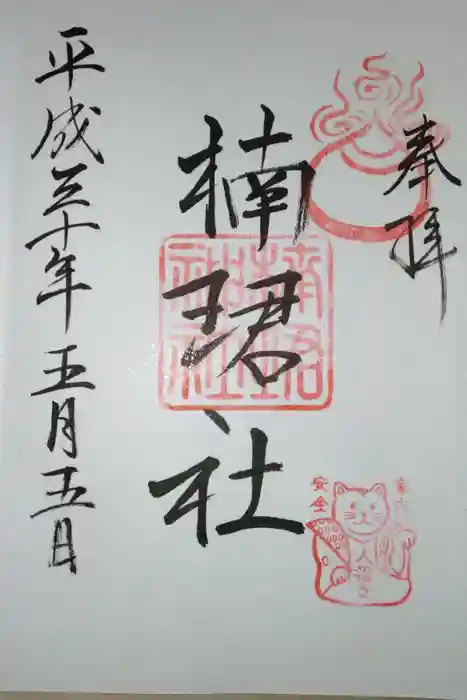 奉拝
楠珺社
平成三十年五月五日
安全